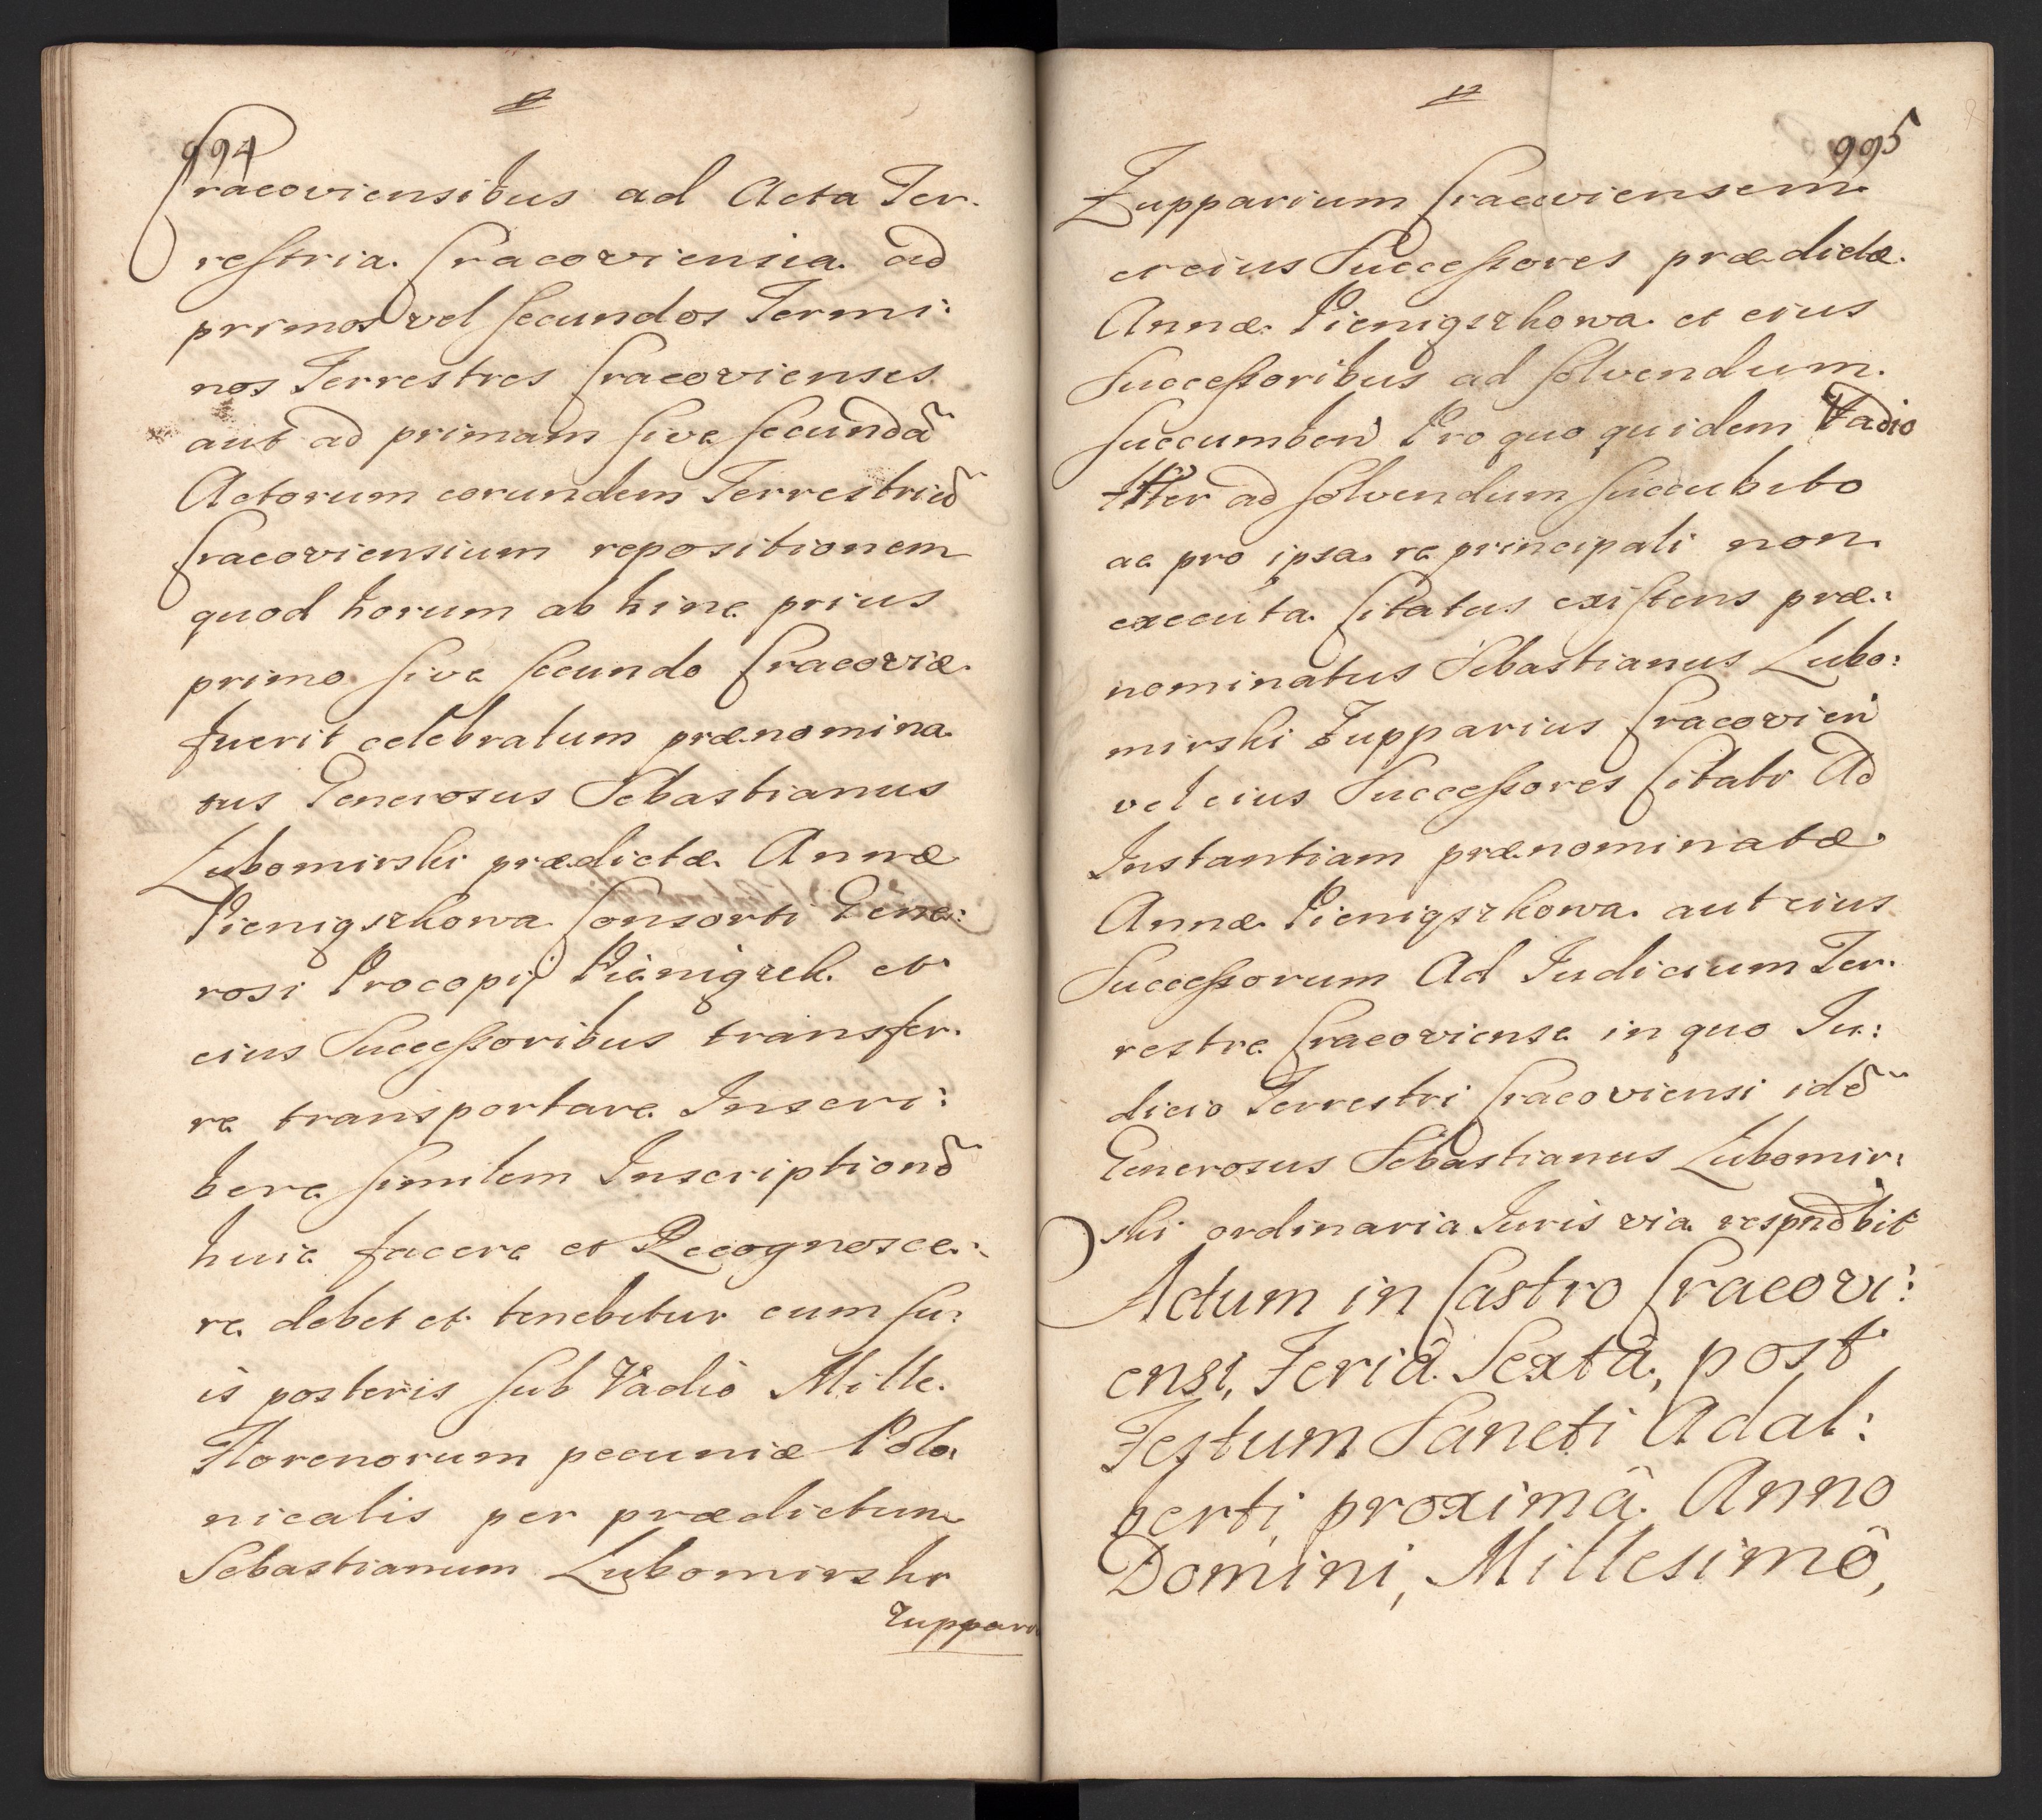 994
Cracoviensibus ad Acta Ter.
restria Cracoviensia ad
primos vel secundos Termi:
nos Terrestres Cracovienses
aut ad primam sive secundã
Actorum eorundem Terrestriũ
Cracoviensium repositionem
quod horum ab hinc prius
primo sive secundo Cracoviæ
fuerit celebratum prænomina
tus Generosus Sebastianus
Lubomirski prædictæ Annæ
Pieniąszkowa Consorti Gene:
rosi Procopij Pieniązek et
eius Successoribus transfer.
re transportare Inscri:
bere similem Inscriptionẽ
huic facere et Recognosce:
re debet et tenebitur cum su:
is posteris sub Vadio Mille
Florenorum pecuniæ Polo:
nicalis per prædictum
Sebastianum Lubomirski
Zuppari
995
Zupparium Cracoviensem
et eius Successores prædictæ
Annæ Pieniąszkowa et eius
Successoribus ad solvendum
succumben Pro quo quidem Vadio
ter ad solvendum succubito
ac pro ipsa re principali non
executa Citatus existens præ:
nominatus Sebastianus Lubo:
mirski Zupparius Cracovien
vel eius Successores Citati Ad
Instantiam prænominatæ
Annæ Pieniąszkowa aut eius
Successorum Ad Iudicium Ter.
restre Cracoviense in quo Iu:
dicio Terrestri Cracoviensi idẽ
Generosus Sebastianus Lubomir:
ski ordinaria Iuris via respñdbit
Actum in Castro Cracovi:
ensi, Feriâ Sextâ, post
Festum Sancti Adal:
berti proximâ Anno
Domini, Millesimô,